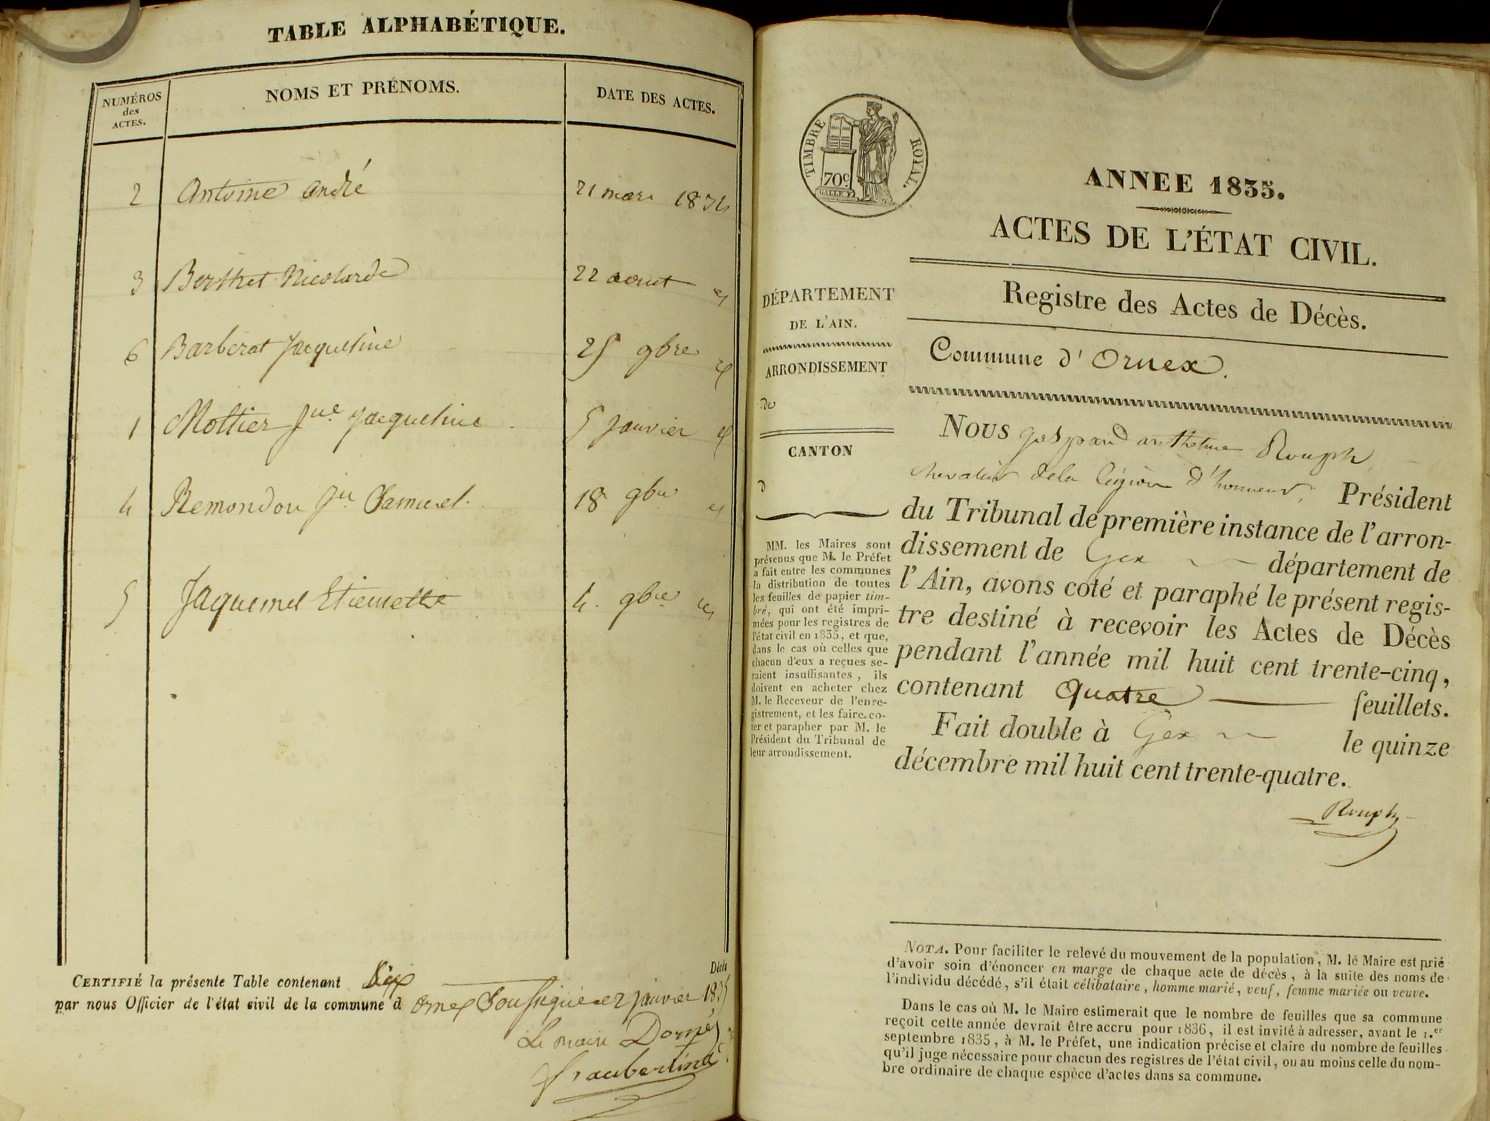 TABLE ALPHABÉTIQUE.
NUMÉROS
des
ACTES.
NOMS ET PRÉNOMS.
DATE DES ACTES.
2 Antoine André 21 mars 1834
3 Berthet 22 aout
6 Barberat Jacqueline 25 9bre
1 Mottier Jne Jacqueline 5 Janvier
4 Remondon Jn Samuel 18 9bre
5 Jaquemet Etiennette 4. 9bre
CERTIFIÉ la présente Table contenant Six Décès
par nous Officier de l'état civil de la commune d ornex Soussigné 2 janvier 1835
Le maire
TIMBRE ROYAL.
70c
ANNEE 1835.
ACTES DE L'ÉTAT CIVIL.
Registre des Actes de Décès.
Commune d'Ornex.
DÉPARTEMENT
DE L'AIN.
ARRONDISSEMENT
de
CANTON
d
MM. les Maires sont
prévenus que M. le Préfet
a fait entre les communes
la distribution de toutes
les feuilles de papier tim-
bré, qui ont été impri-
mées pour les registres de
l'état civil en 1835, et que,
dans le cas où celles que
chacun d'eux a reçues se-
raient insuffisantes, ils
doivent en acheter chez
M. le Receveur de l'enre-
gistrement, et les faire co-
ter et parapher par M. le
Président du Tribunal de
leur arrondissement.
NOUS gaspard anthelme Rouph
chevalier de la légion d'honneur, Président
du Tribunal de première instance de l'arron-
dissement de Gex département de
l'Ain, avons coté et paraphé le présent regis-
tre destiné à recevoir les Actes de Décès
pendant l'année mil huit cent trente-cinq,
contenant quatre feuillets.
Fait double à Gex le quinze
décembre mil huit cent trente-quatre.
Rouph
NOTA. Pour faciliter le relevé du mouvement de la population, M. le Maire est prié
d'avoir soin d'énoncer en marge de chaque acte de décès, à la suite des noms de
l'individu décédé, s'il était célibataire, homme marié, veuf, femme mariée ou veuve.
Dans le cas où M. le Maire estimerait que le nombre de feuilles que sa commune
reçoit cette année devrait être accru pour 1836, il est invité à adresser, avant le 1.er
septembre 1835, à M. le Préfet, une indication précise et claire du nombre de feuilles
qu'il juge nécessaire pour chacun des registres de l'état civil, ou au moins celle du nom-
bre ordinaire de chaque espèce d'actes dans sa commune.